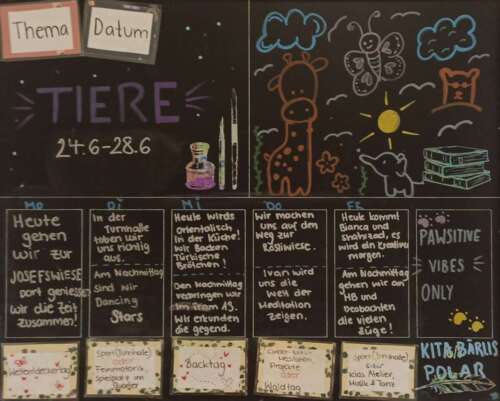 Thema
Datum
TIERE
24.6-28.6
Mo
Di
Mi
Do
Fr
Heute
gehen
wir zur
JOSEFSWIESE
Dort geniessen
wir die Zeit
zusammen!
In der
Turnhalle
toben wir
uns richtig
aus.
Am Nachmittag
sind wir
Dancing
Stars
Heute wirds
orientalisch
in der Küche!
Wir Backen
Türkische
Brötchen!
Den Nachmittag
verbringen wir
im Team 13.
Wir erkunden
die gegend.
Wir machen
uns auf dem
Weg zur
Rösliwiese.
Ivan wird
uns die
Welt der
Meditation
zeigen.
Heute kommt
Bianca und
Shahrzad, es
wird ein kreativer
morgen.
Am Nachmittag
gehen wir an
HB und
Beobachten
die vielen
Züge!
PAWSITIVE
VIBES
ONLY
KITA BÄRLIS
POLAR
Weltentdeckertag
Sport (Turnhalle)
oder
Feinmotorik,
Spielgold im
Backtag
Kinder-Yoga
Meditation
Projekte
oder
Waldtag
Sport (Turnhalle)
oder
Kids Atelier,
Musik & Tanz